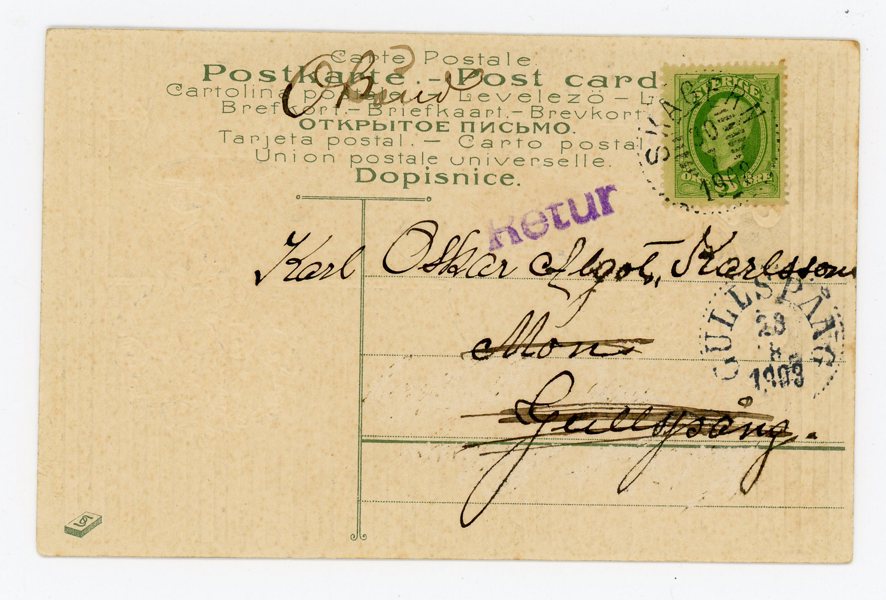 Carte Postale
Postkarte. – Post card
Cartolina postale – Levelezö – L
Brefkort. – Briefkaart. – Brevkort
ОТКРЫТОЕ ПИСЬМО.
Tarjeta postal. – Carto postal
Union postale universelle.
Dopisnice.
SVERIGE
SKAGERN
Retur
Karl Oskar Algot, Karlsson
Mon
Gullspång.
GULLSPÅNG
28
8
1903